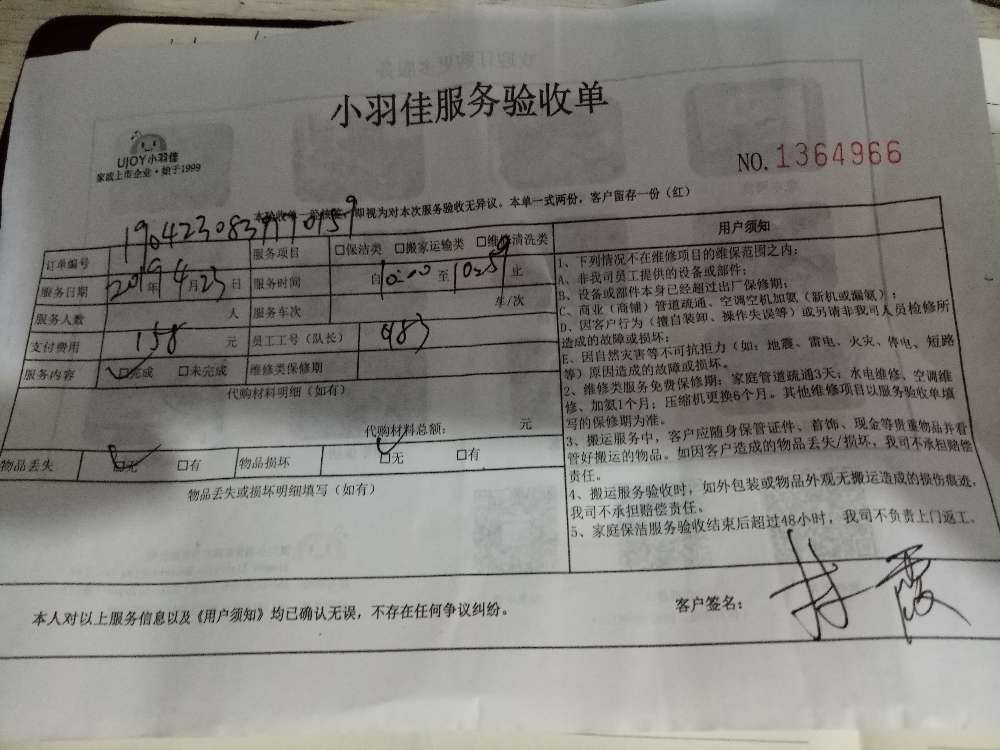 小羽佳服务验收单
UJOY小羽佳
家政上市企业·始于1999
NO. 1364966
即视为对本次服务验收无异议。本单一式两份，客户留存一份（红）
订单编号
服务项目 □保洁类 □搬家运输类 □维修清洗类
服务日期 2019年4月23日 服务时间 自10:00至10:59止
服务人数 人 服务车次 车/次
支付费用 158 元 员工工号（队长） 983
服务内容 □完成 □未完成 维修类保修期
代购材料明细（如有）
代购材料总额： 元
物品丢失 □无 □有 物品损坏 □无 □有
物品丢失或损坏明细填写（如有）
用户须知
1、下列情况不在维修项目的维保范围之内：
A、非我司员工提供的设备或部件；
B、设备或部件本身已经超过出厂保修期；
C、商业（商铺）管道疏通、空调空机加氨（新机或漏氨）；
D、因客户行为（擅自装卸、操作失误等）或另请非我司人员检修所
造成的故障或损坏；
E、因自然灾害等不可抗拒力（如：地震、雷电、火灾、停电、短路
等）原因造成的故障或损坏。
2、维修类服务免费保修期：家庭管道疏通3天；水电维修、空调维
修、加氨1个月；压缩机更换6个月。其他维修项目以服务验收单填
写的保修期为准。
3、搬运服务中，客户应随身保管证件、首饰、现金等贵重物品并看
管好搬运的物品。如因客户造成的物品丢失/损坏，我司不承担赔偿
责任。
4、搬运服务验收时，如外包装或物品外观无搬运造成的损伤痕迹，
我司不承担赔偿责任。
5、家庭保洁服务验收结束后超过48小时，我司不负责上门返工。
本人对以上服务信息以及《用户须知》均已确认无误，不存在任何争议纠纷。
客户签名： 林霞